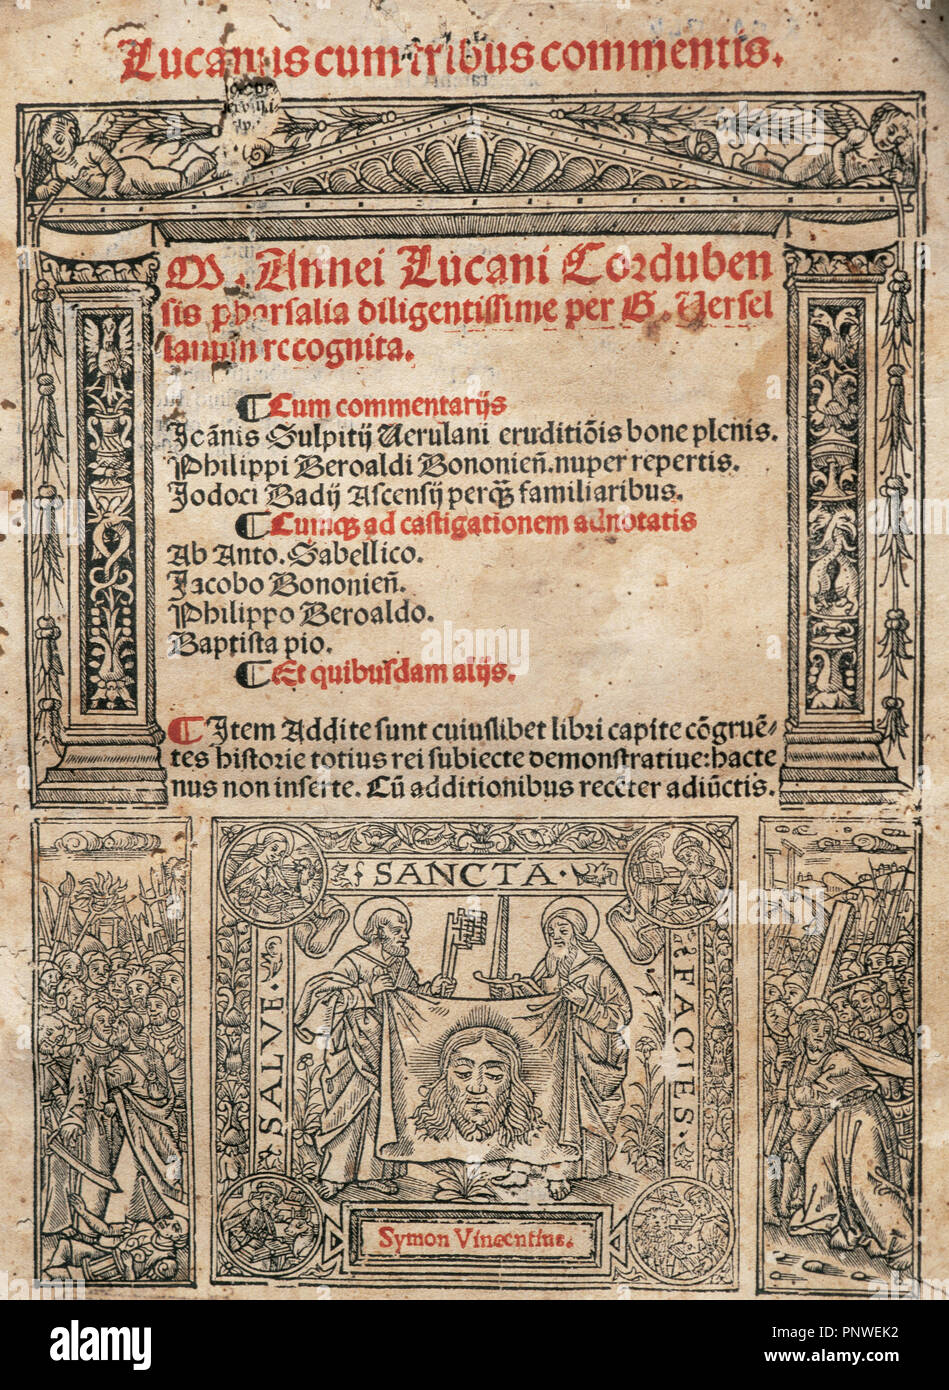 Lucanus cum tribus commentis.
M. Annei Lucani Corduben
sis pharsalia diligentissime per G. Versel
lanum recognita.
¶Cum commentarijs
Joānis Sulpitij Verulani eruditiōis bone plenis.
Philippi Beroaldi Bononień. nuper repertis.
Jodoci Badij Ascensij perq̄ familiaribus.
¶Cumqꝫ ad castigationem adnotatis
Ab Anto. Sabellico.
Jacobo Bononień.
Philippo Beroaldo.
Baptista pio.
¶Et quibusdam alijs.
¶Item Addite sunt cuiuslibet libri capite cōgruē-
tes historie totius rei subiecte demonstratiue: hacte
nus non inserte. Cū additionibus recēter adiūctis.
SALVE · SANCTA · FACIES ·
Symon Vincentius.
alamy
Image ID: PNWEK2
www.alamy.com